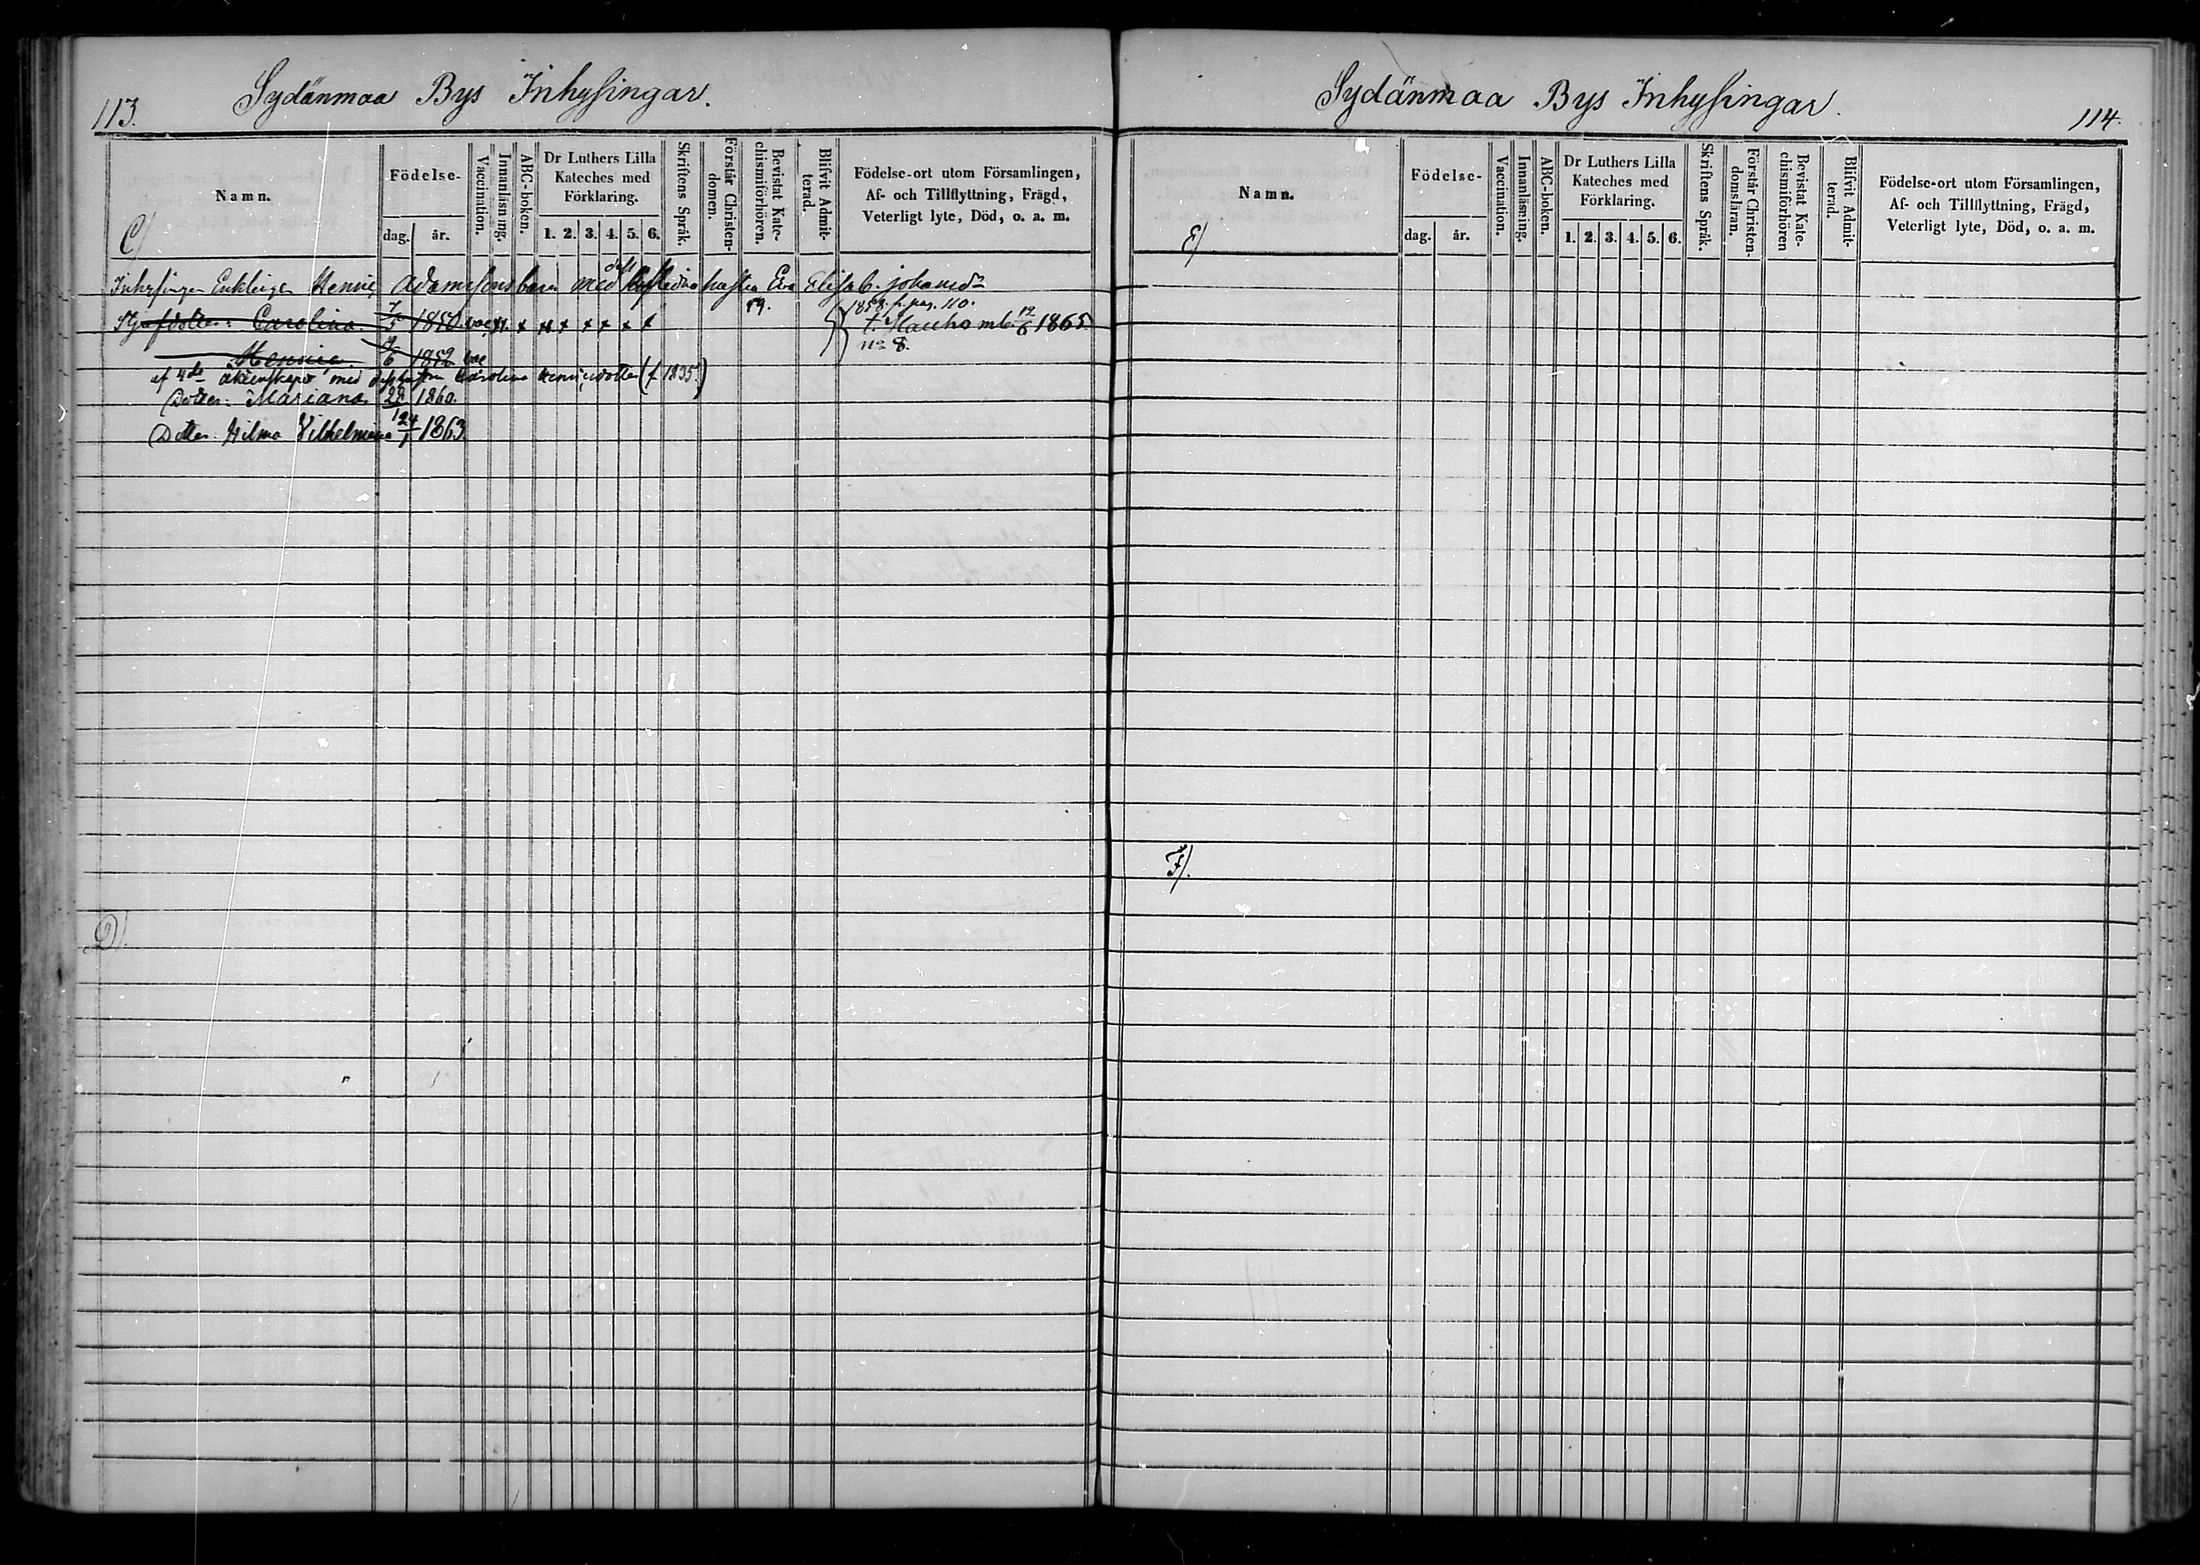 113.
Sydänmaa Bys Inhysingar.
Namn.
C)
Födelse-
dag. år.
Vaccination.
Innanläsning.
ABC-boken.
Dr Luthers Lilla
Kateches med
Förklaring.
1. 2. 3. 4. 5. 6.
Skriftens Språk.
Förstår Christen-
domen.
Bevistat Kate-
chismiförhören.
Blifvit Admit-
terad.
Födelse-ort utom Församlingen,
Af- och Tillflyttning, Frägd,
Veterligt lyte, Död, o. a. m.
Inhysingen Enklingen Adamssons barn med hustru Eva Elisab. johansdr
59. 1858 fr. pag. 110.
Styfdotter: Carolina. 7/5 1850 vac. x x x x x x x x t. 12/6 1865.
no 8.
1852 vac
af 4de äktenskapet med Carolina (f 1835.)
Dotter: Mariana. 1860.
Dotter. Hilma Vilhelmina 24/1 1863.
D).
Sydänmaa Bys Inhysingar.
114.
Namn.
E)
Födelse-
dag. år.
Vaccination.
Innanläsning.
ABC-boken.
Dr Luthers Lilla
Kateches med
Förklaring.
1. 2. 3. 4. 5. 6.
Skriftens Språk.
Förstår Christen-
domsläran.
Bevistat Kate-
chismiförhören
Blifvit Admit-
terad.
Födelse-ort utom Församlingen,
Af- och Tillflyttning, Frägd,
Veterligt lyte, Död, o. a. m.
F).